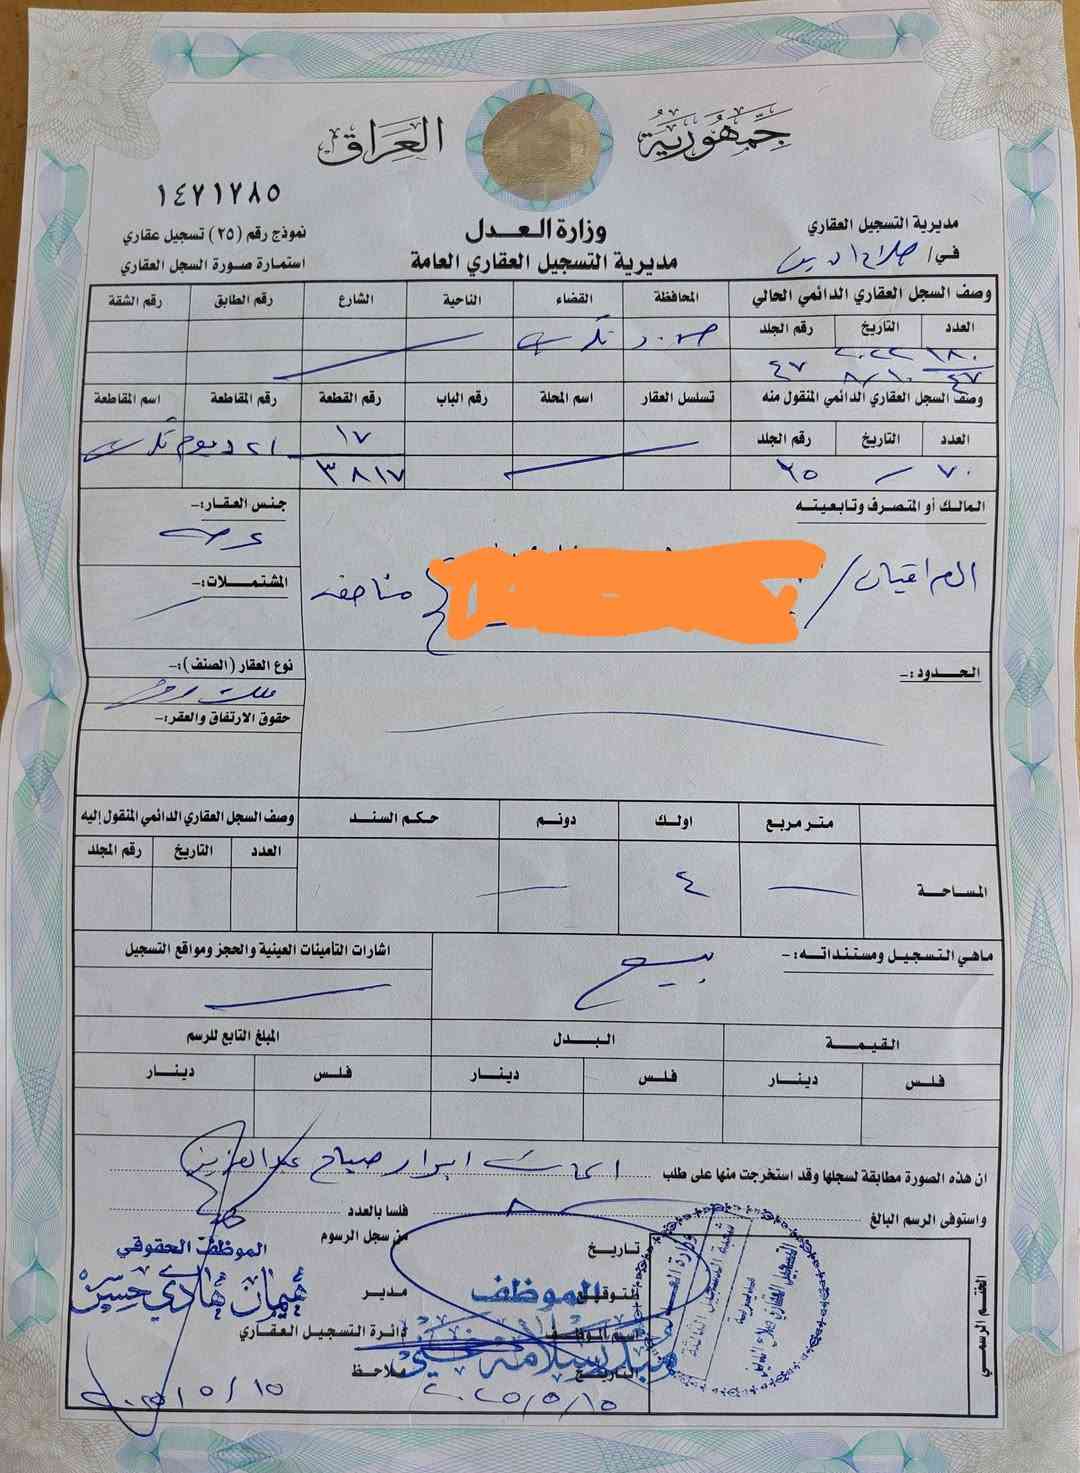 جمهورية العراق
١٤٧١٧٨٥
مديرية التسجيل العقاري
في/ صلاح الدين
وزارة العدل
مديرية التسجيل العقاري العامة
نموذج رقم (٢٥) تسجيل عقاري
استمارة صورة السجل العقاري
وصف السجل العقاري الدائمي الحالي
المحافظة القضاء الناحية الشارع رقم الطابق رقم الشقة
العدد التاريخ رقم الجلد
تكريت
١٨٠ ٢٠٢٢ ٤٧
٤٧ ٨/١٠
وصف السجل العقاري الدائمي المنقول منه
تسلسل العقار اسم المحلة رقم الباب رقم القطعة رقم المقاطعة اسم المقاطعة
العدد التاريخ رقم الجلد
١٧ ٢١ ديوم تكريت
٧٠ ٢٥ ٣٨١٧
المالك أو المتصرف وتابعيته
العراقيان/ مناصفة
جنس العقار:-
عرصة
المشتملات:-
الحدود:-
نوع العقار (الصنف):-
ملك صرف
حقوق الارتفاق والعقر:-
متر مربع اولك دونم حكم السند
وصف السجل العقاري الدائمي المنقول إليه
العدد التاريخ رقم المجلد
المساحة ٤
ماهي التسجيل ومستنداته:- بيع
اشارات التأمينات العينية والحجز ومواقع التسجيل
القيمة البدل المبلغ التابع للرسم
فلس دينار فلس دينار فلس دينار
ان هذه الصورة مطابقة لسجلها وقد استخرجت منها على طلب ابرار صباح عبد العزيز
واستوفى الرسم البالغ فلسا بالعدد
تاريخ من سجل الرسوم
الموظف الحقوقي
هيمان هادي حسن
التوقيع الموظف مدير
اسم الموظف دائرة التسجيل العقاري
التاريخ ملاحظ
٢٠٢٥/٥/١٥
٢٠٢٥/٥/١٥
الختم الرسمي
وزارة العدل